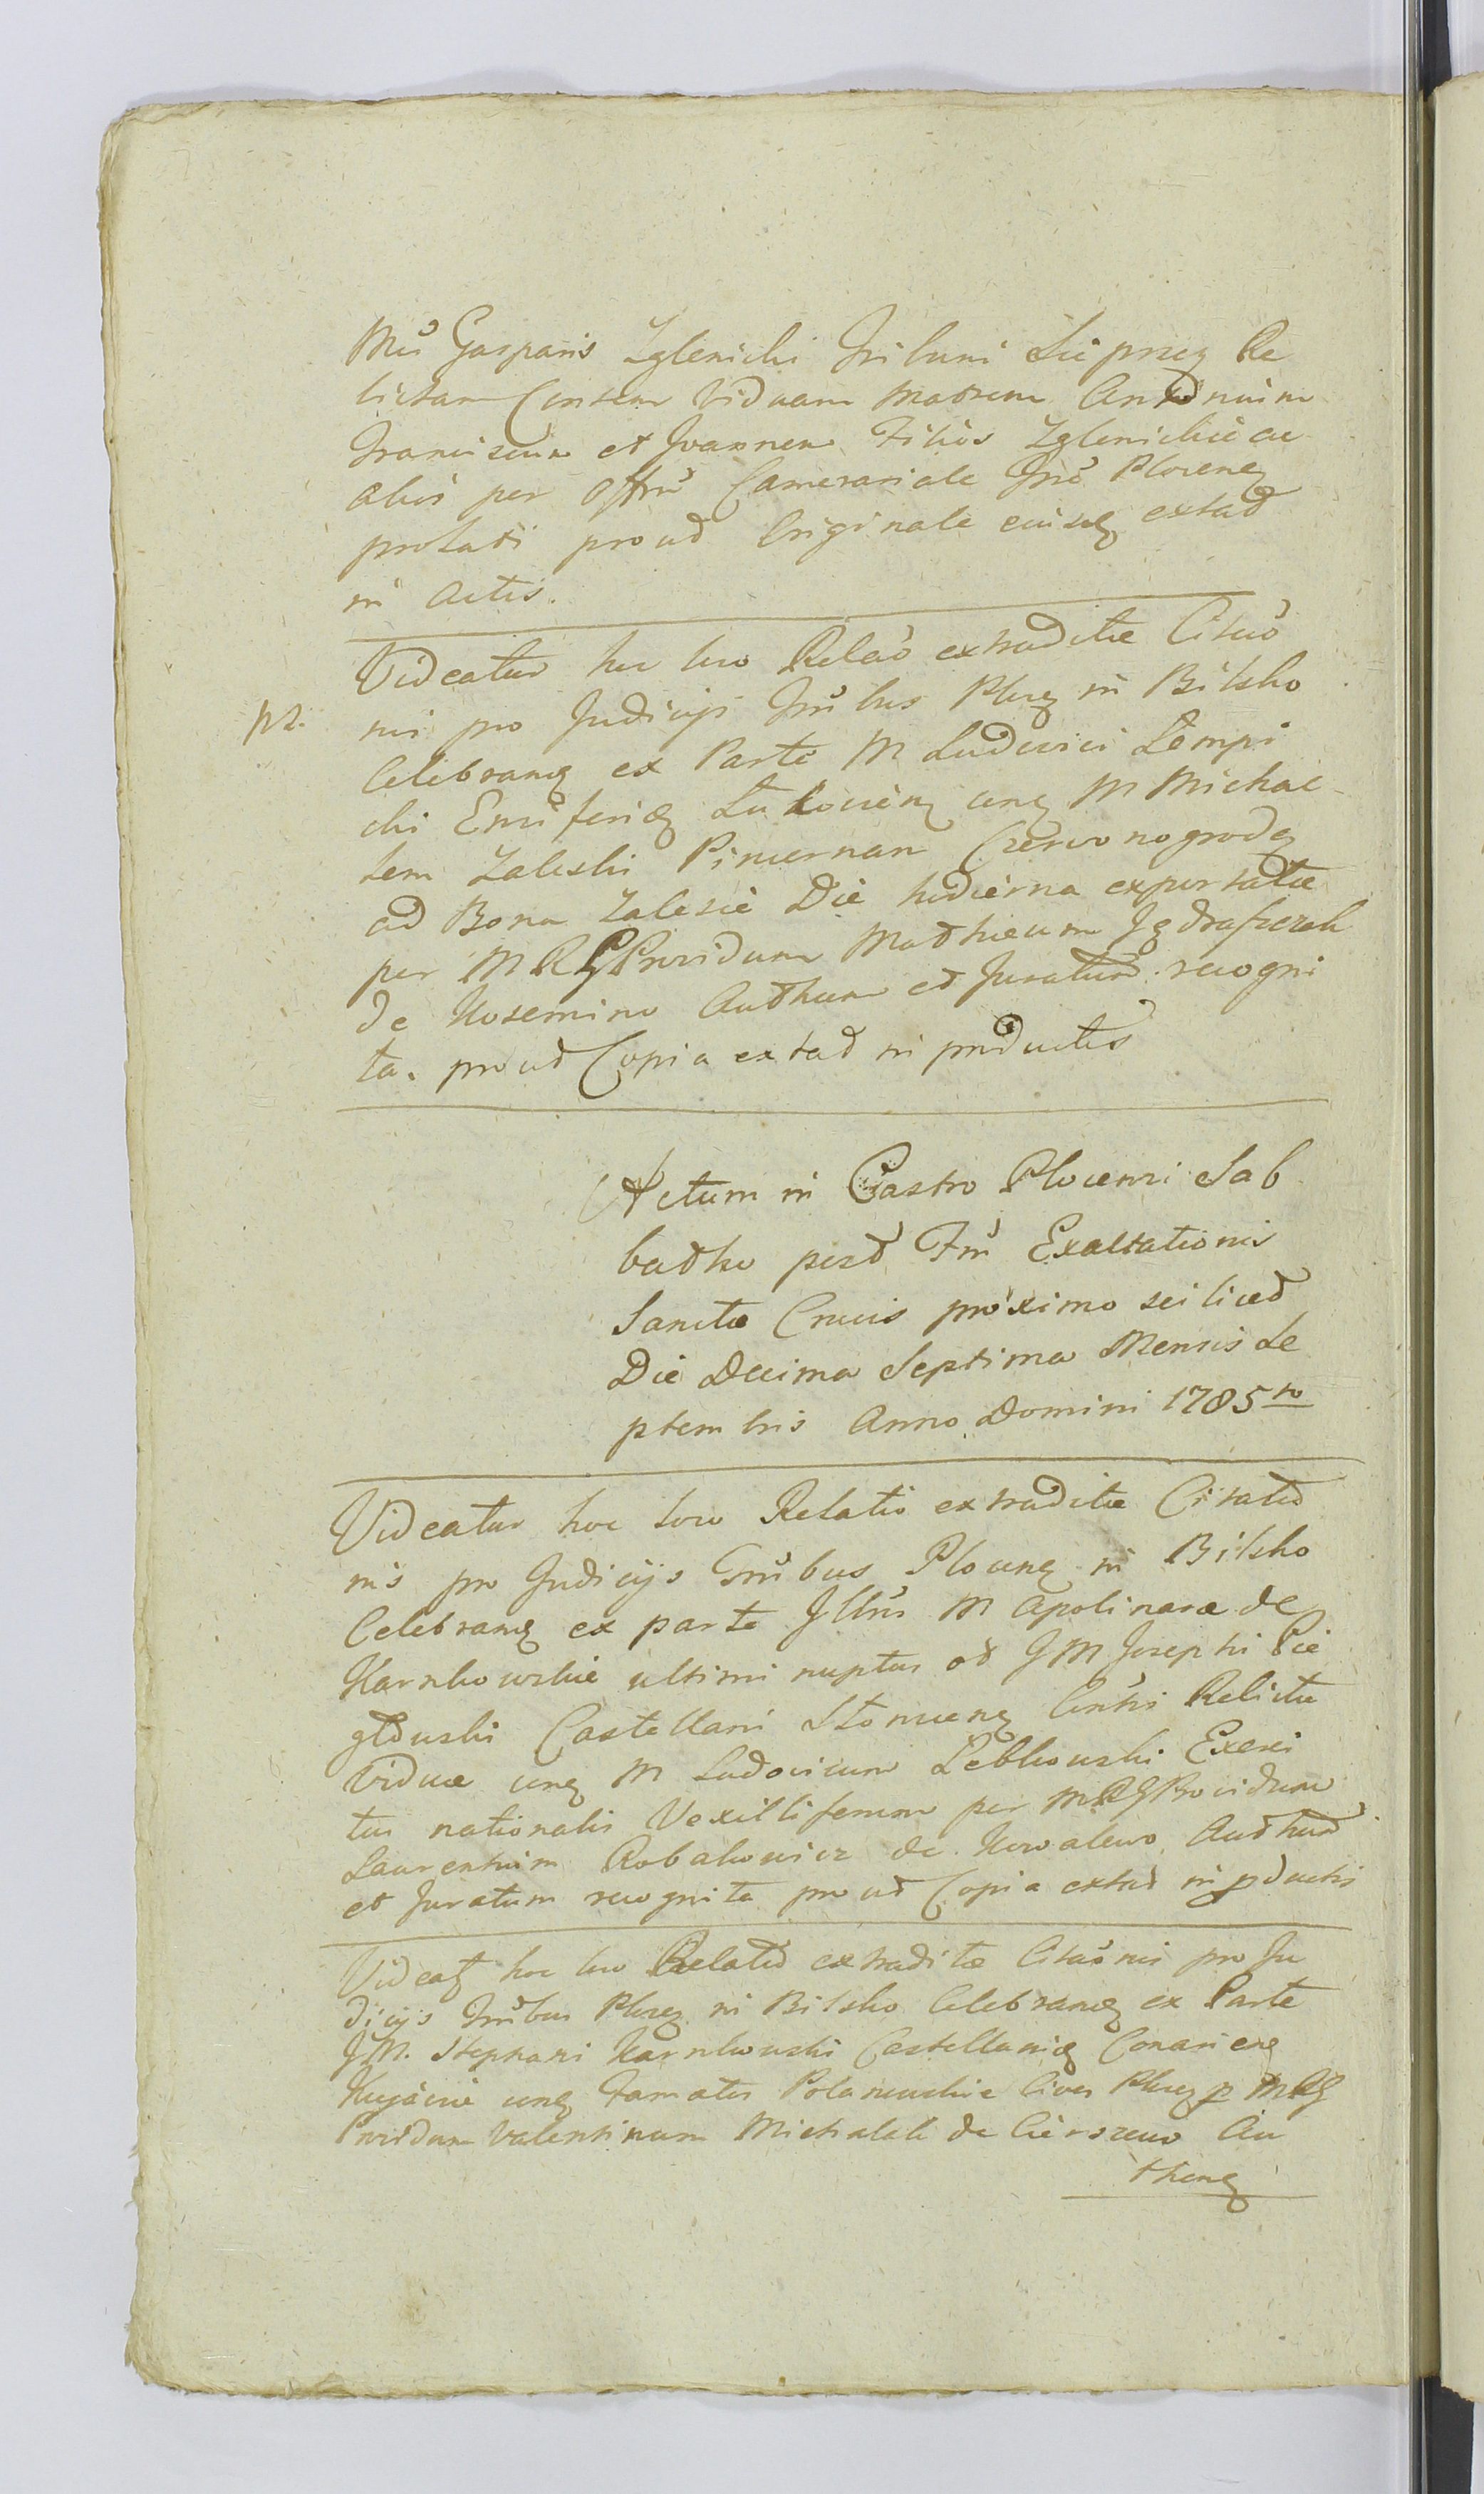 Mci Gasparis Zglenicki Tribuni Lieprzeg Re
lictam Consem Viduam Matrem Antonium
Franciscum et Joannem Filios Zglenickie ac
alios per Offm Camerariale Trre Ploceneg
prolati prout Originale eiusdeg extat
in Actis.
Videatur hic loco Relao extraditæ Citaõ
pz. nis pro Judicijs Trribus Plceg in Bilsko
Celebraneg ex Parte M Ludovici Lempi
cki Ensiferideg Lukovieng cneg M Michae
lem Zaleski Pincernam Czerwonogrodeg
ad Bona Zalesie Die hodierna exportatæ
per MRG Providum Mathæum
de Kosemino Authum et Juratum recogni
ta. prout Copia extat in productis
Actum in Castro Plocensi Sab
batho post Fm Exaltationis
Sanctæ Crucis proximo scilicet
Die Decima Septima Mensis Se
ptembris Anno Domini 1785to
Videatur hoc loco Relatio extraditæ Citatio
nis pro Judicijs Trribus Ploceneg in Bilsko
Celebraneg ex parte Jllris M Apolinaræ de
Karnkowskie ultimi nuptus ot JM Josephi Pie
gtduski Castellani Slonsceneg Consis Relictæ
Viduæ cneg M Ludovicum Leblkowski Exerci
tus nationalis Vexilliferum per MRG Providum
Laurentium Robakowicz de Kowalewo Authum
et Juratum recognita prout Copia extat in pductis
Videateg hoc loco Relatio extraditæ Citaõnis pro Ju
dicijs Trribus Plceg in Bilsko Celebraneg ex Parte
JM. Stephani Karnkowski Castellanideg Conarieneg
Kujaviæ cneg Famatos Polanowskie Cives Plceg p MRG
Providum Valentinum Michalak de Cierszewo Au
theneg